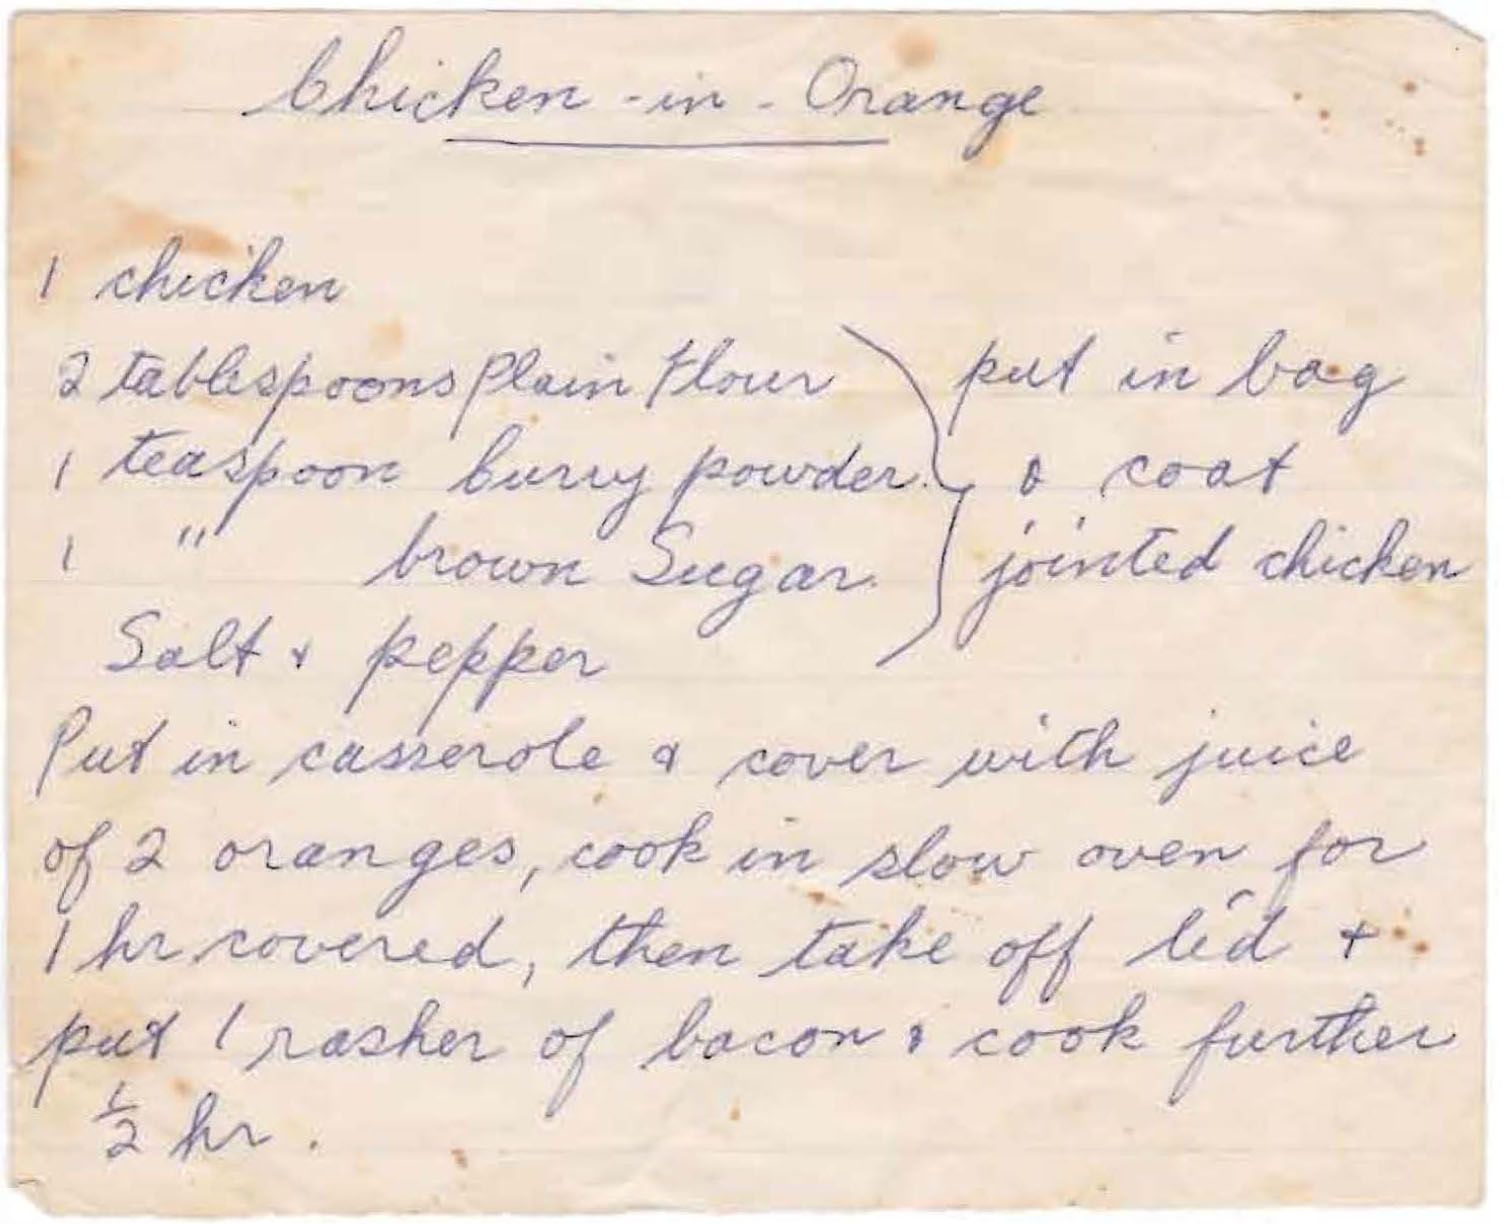 Chicken - in - Orange
1 chicken
2 tablespoons Plain Flour
1 teaspoon Curry powder.
1 " brown Sugar.
Salt & pepper
put in bag
& coat
jointed chicken
Put in casserole & cover with juice
of 2 oranges, cook in slow oven for
1 hr covered, then take off lid &
put 1 rasher of bacon & cook further
½ hr.